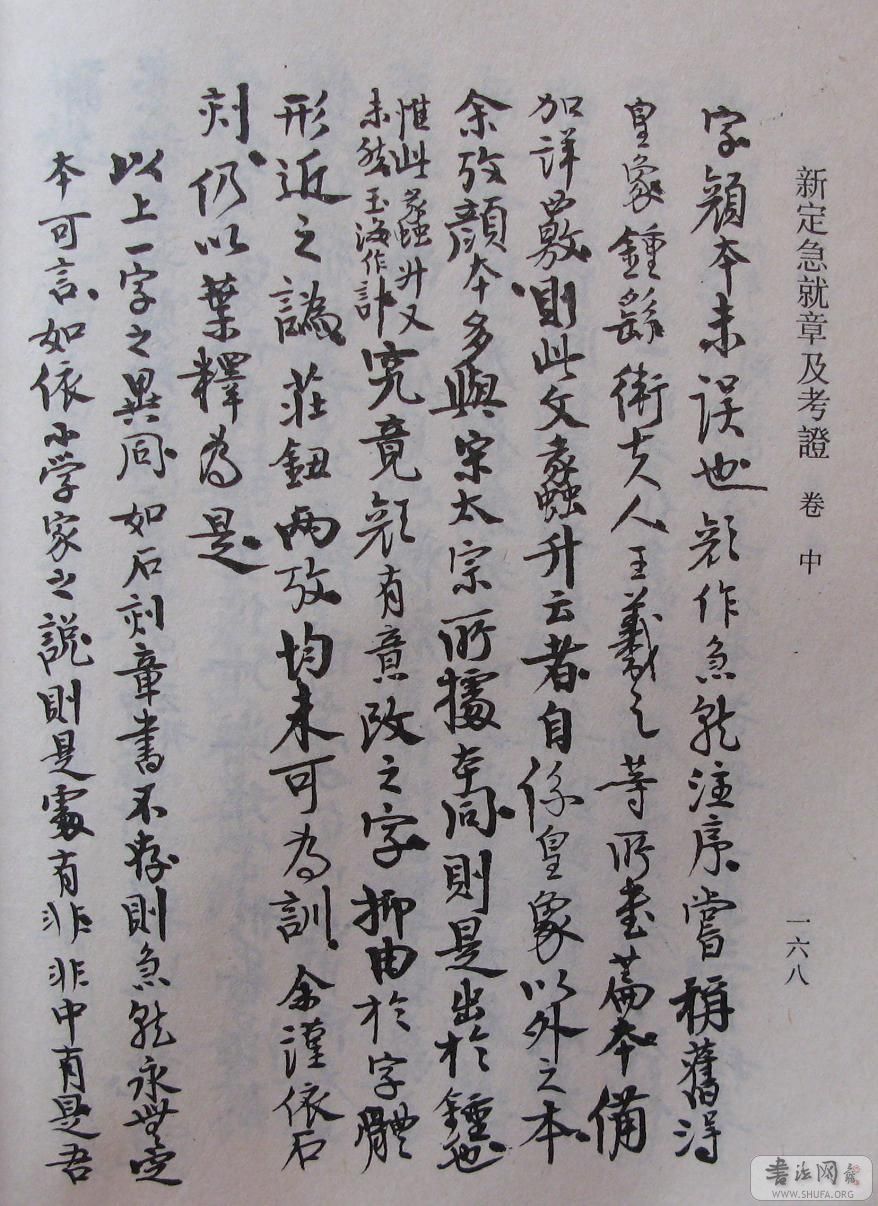 新定急就章及考證 卷中
一六八
字顏本未誤也顏作急就注序嘗稱舊得
皇象鍾繇衛夫人王羲之等所書篇本備
加詳覈則此文蟸升云者自係皇象以外之本
余攷顏本多與宋太宗所據本同則是出於鍾也
惟此蟸升又
未然玉海作計
究竟顏有意改之字抑由於字體
形近之譌莊鈕兩攷均未可為訓余謹依石
刻仍以葉釋為是
以上一字之異同如石刻章書不存則急就永無定
本可言如依小学家之說則是處有非非中有是吾
書法网
WWW.SHUFA.ORG